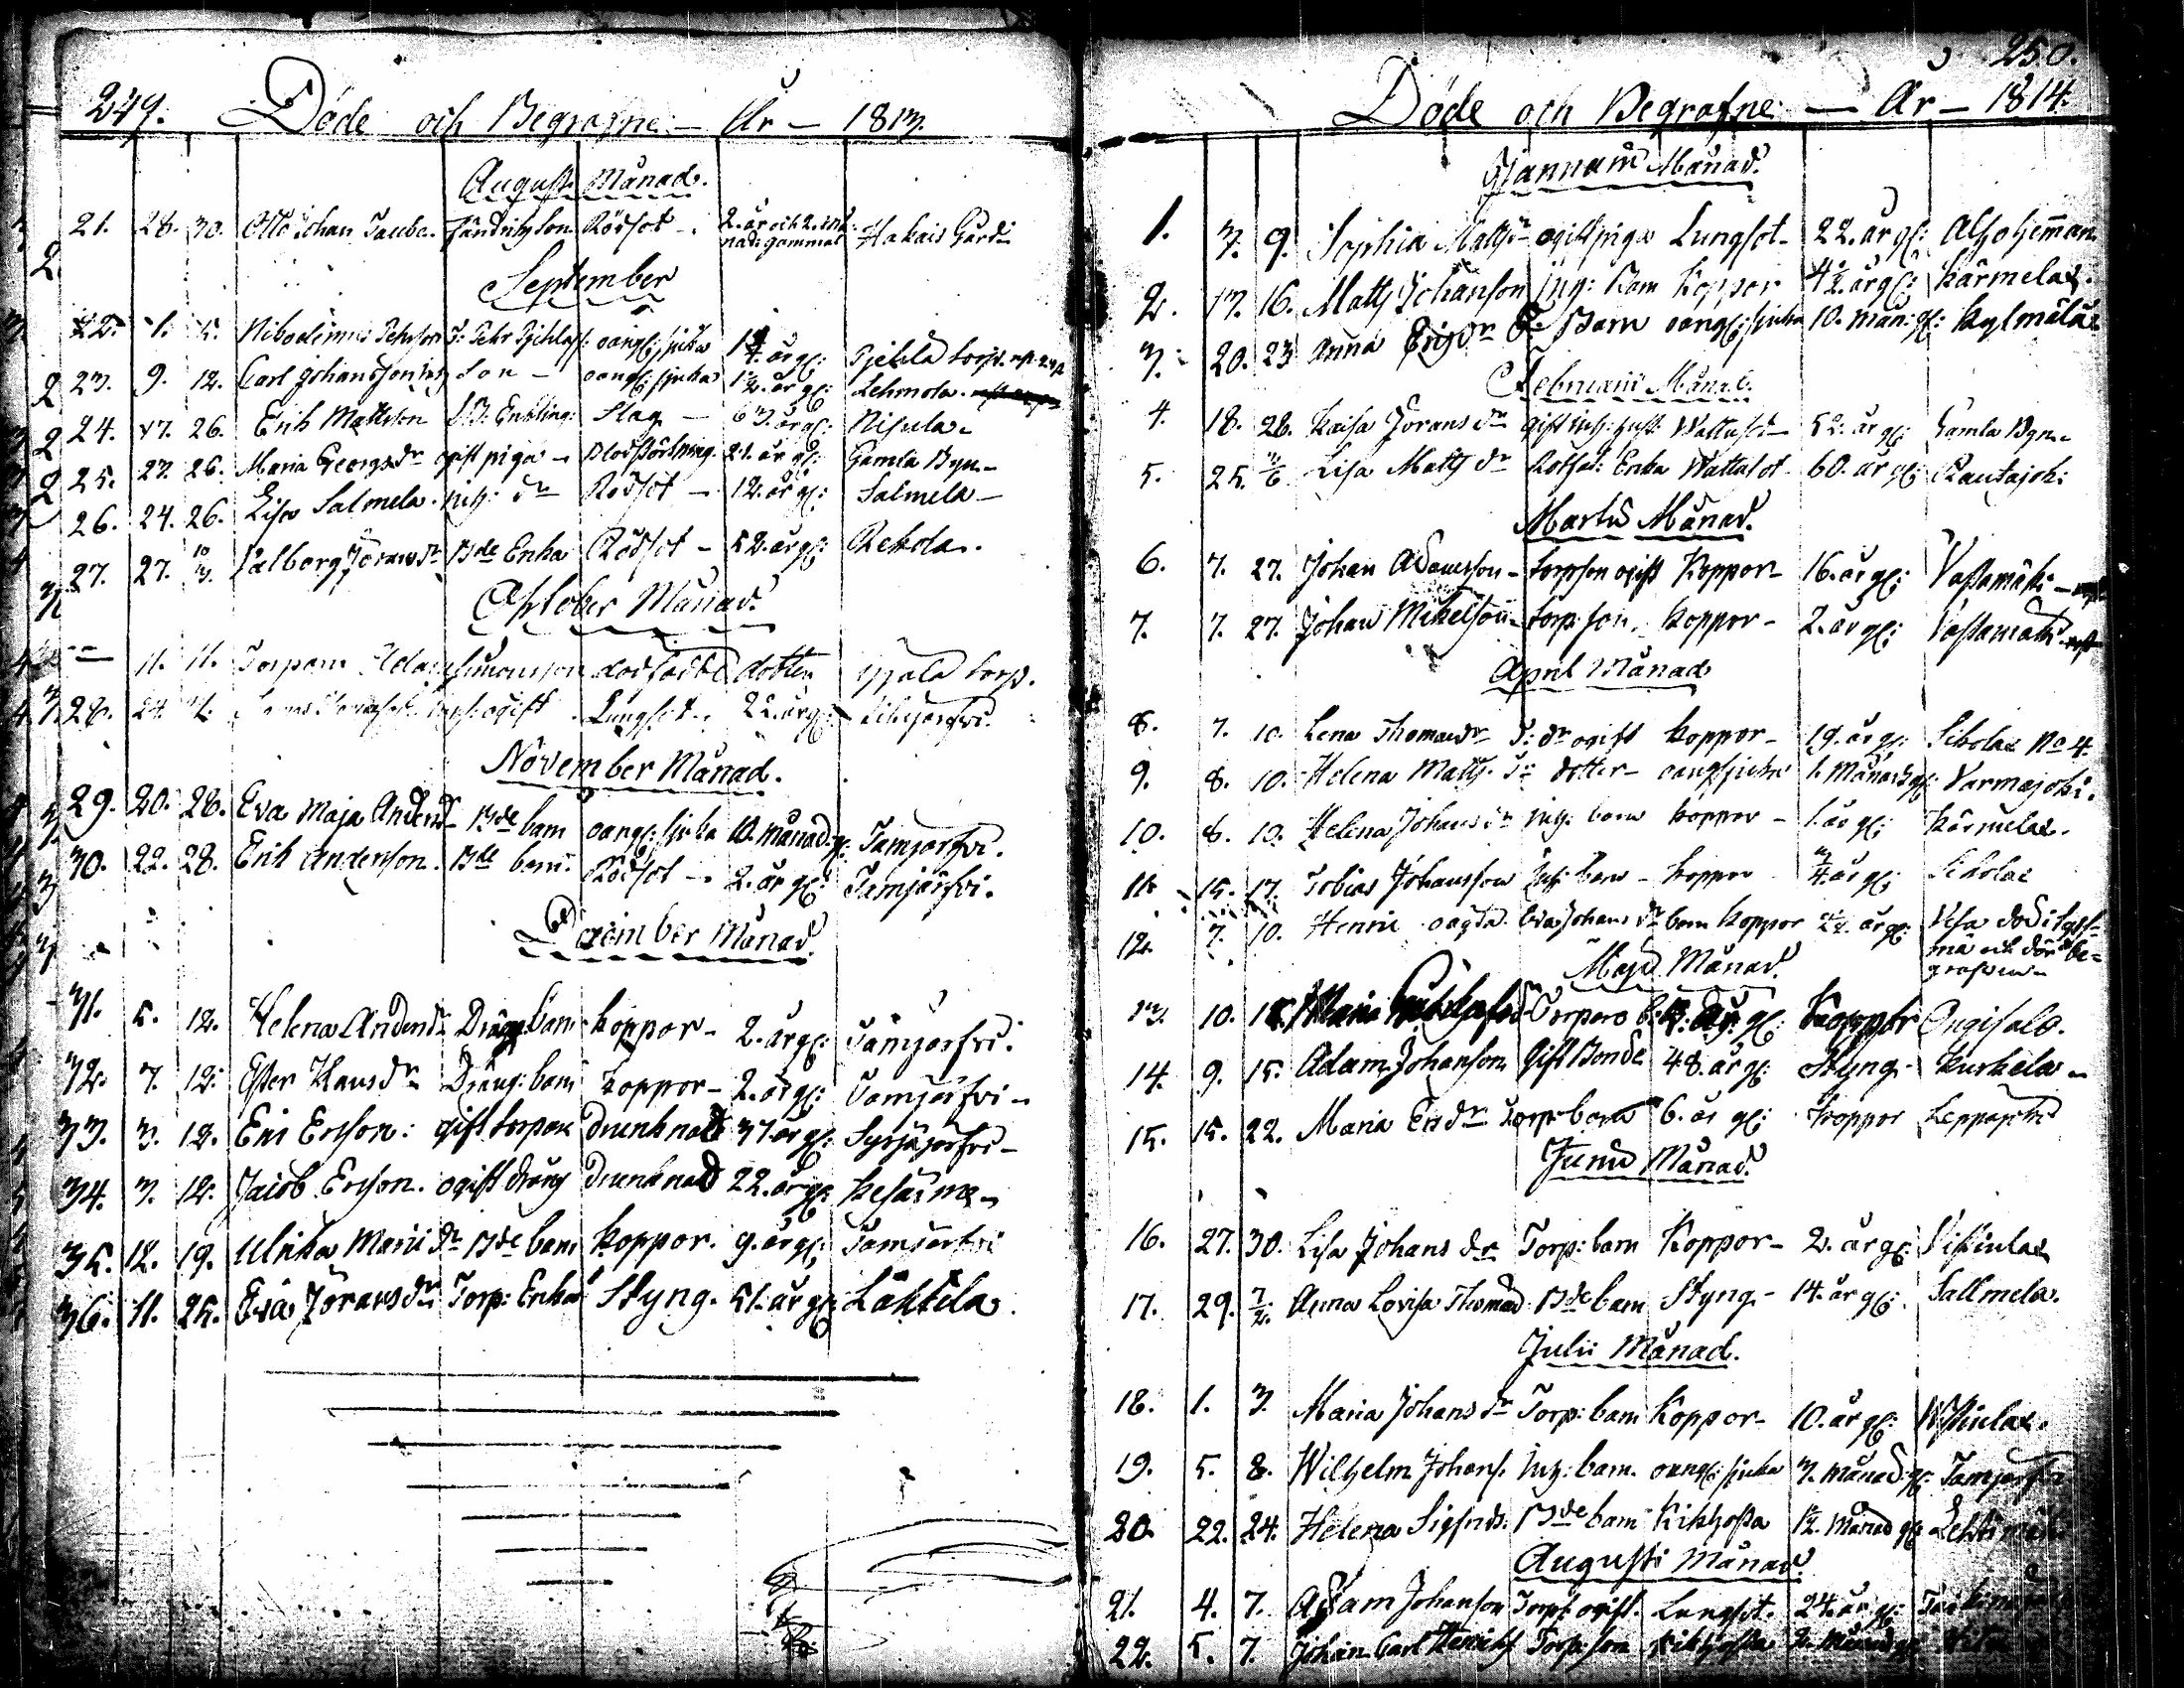 249. Döde och Begrafne - År - 1813.
Augusti Månad.
21. 28. 30. Otto Johan Taube. Fändriks Son Rödsot - 2. år och 2. må-
nad: gammal Hakais Gård
September
22. 1. 5. Nikodemus oangf: sjuka år gl:
23. 9. 12. Carl Johansson Son - oangf: sjuka 1½ år gl: Lehmola.
24. 17. 26. Erik Mattsson Enkling: Slag - 63. år gl: Nisula.
25. 22. 26. Maria Georgs dr ogift piga - Blodstörtning 21. år gl: Gamla Byn.
26. 24. 26. Lisa Salmela. inh: dr Rödsot - 12. år gl: Salmela -
27. 27. 10/3. Valborg Jörans dr Bde Enka Rödsot - 52. år gl: Rekola.
Oktober Månad.
- 11. 11. Torparn Simonsson dödfödde dotter torp.
28. 24. ogift Lungsot. 22. år gl:
November Månad.
29. 20. 28. Eva Maja Anders d Bde barn oangf: sjuka 10. månad: gl: Tamjärfvi.
30. 22. 28. Erik Andersson. Bde barn. Rödsot - 2. år gl: Tamjärfvi.
December Månad.
31. 5. 12. Helena Anders dr Dräng barn koppor - 2. år gl: Tämjärfvi.
32. 7. 12. Ester Hans dr Dräng: barn koppor - 2. år gl: Tamjärfvi -
33. 3. 12. Eric Ersson: gift torpare drunknade 37. år gl: Syrjäjärfvi -
34. 3. 12. Jacob Ersson. ogift dräng drunknad 22. år gl:
35. 12. 19. Ulrika Marii dr Bde barn koppor. 9. år gl: Tamjärfvi
36. 11. 25. Eva Jörans dr Torp: Enka Styng. 51. år gl: Läktela.
250.
Döde och Begrafne - År - 1814.
Januarii Månad.
1. 3. 9. Sophia Matts dr ogift piga Lungsot - 22. år gl:
2. 13. 16. Matts Johansson inh: Barn Koppor 4½. år gl: Kärmelä.
3. 20. 23 Anna Erics dr Barn oangf: sjuka 10. mån: gl: Kylmälä
Februarii Månad.
4. 18. 26. Kaisa Jörans dr gift inh: hust: Wattusot - 52. år gl: Gamla Byn.
5. 25. 3/6 Lisa Matts dr Rotfat: Enka Wattusot - 60. år gl: Rautajoki
Martii Månad.
6. 7. 27. Johan Adamsson - torpson ogift Koppor - 16. år gl: Vastamäki -
7. 7. 27. Johan Mikelsson - torp: son, koppor - 2. år gl: Vastamäki.
April Månad
8. 7. 10. Lena Thomas dr T: dr ogift koppor - 19. år gl: Sikola No 4.
9. 8. 10. Helena Matts. dr dotter - oangf sjuka 1. Månads gl: Varmajoki.
10. 8. 10. Helena Johans dr inh: barn koppor - 1. år gl: Kärmelä.
11. 15. 17. Tobias Johansson Inh: barn - koppor 3/4. år gl: Sikola
12. 7. 10. Henric oägta. Eva Johans dr barn koppor år gl: Vesa död i
och där be-
grafven -
Maji Månad.
13. 10. 15. Maria Torpare b: år. gl: Koppor Ongisalo.
14. 9. 15. Adam Johansson Gift Bonde 48. år gl: Styng - Kurkela -
15. 15. 22. Maria Ers dr Torp: barn 6. år gl: koppor
Junii Månad.
16. 27. 30. Lisa Johans dr Torp: barn Koppor - 2. år gl:
17. 29. 7/2. Anna Lovisa Thomæ d: Bde barn Styng - 14. år gl: Sallmela.
Julii Månad.
18. 1. 3. Maria Johans dr Torp: barn Koppor - 10. år gl:
19. 5. 8. Wilhelm Johans. Inh: barn. oangf: sjuka 3. månad: gl: Tamjärfvi
20. 22. 24. Helena Sigfrids. Bde barn Kikhosta 1½. Månad gl: Lehtimäki
Augusti Månad.
21. 4. 7. Adam Johansson Torp: ogift. Lungsot. 24. år gl:
22. 5. 7. Johan Carl Henrics Torp: son Kikhosta 2. Månad gl: